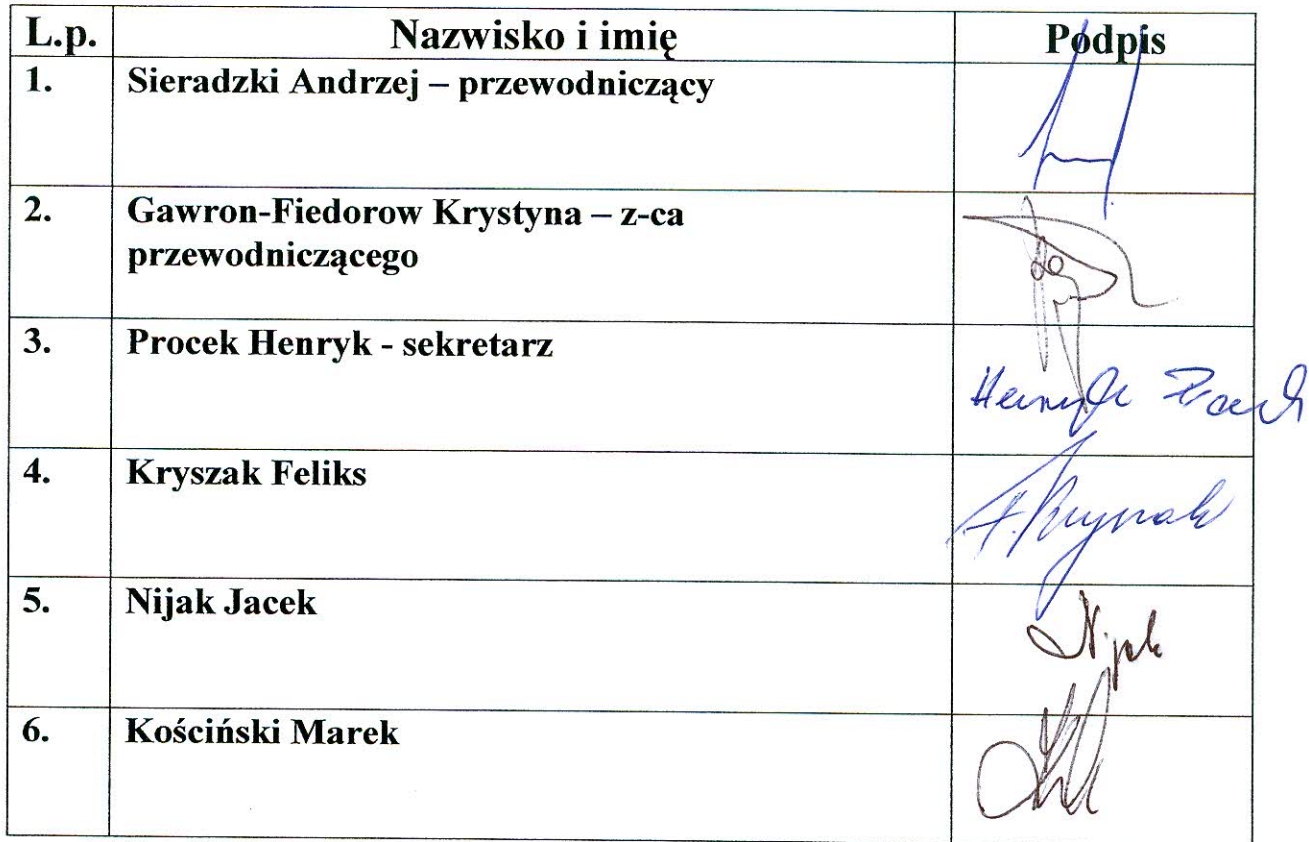 L.p. Nazwisko i imię Podpis
1. Sieradzki Andrzej – przewodniczący
2. Gawron-Fiedorow Krystyna – z-ca
przewodniczącego
3. Procek Henryk - sekretarz
Henryk
4. Kryszak Feliks
F. Kryszak
5. Nijak Jacek
Nijak
6. Kościński Marek